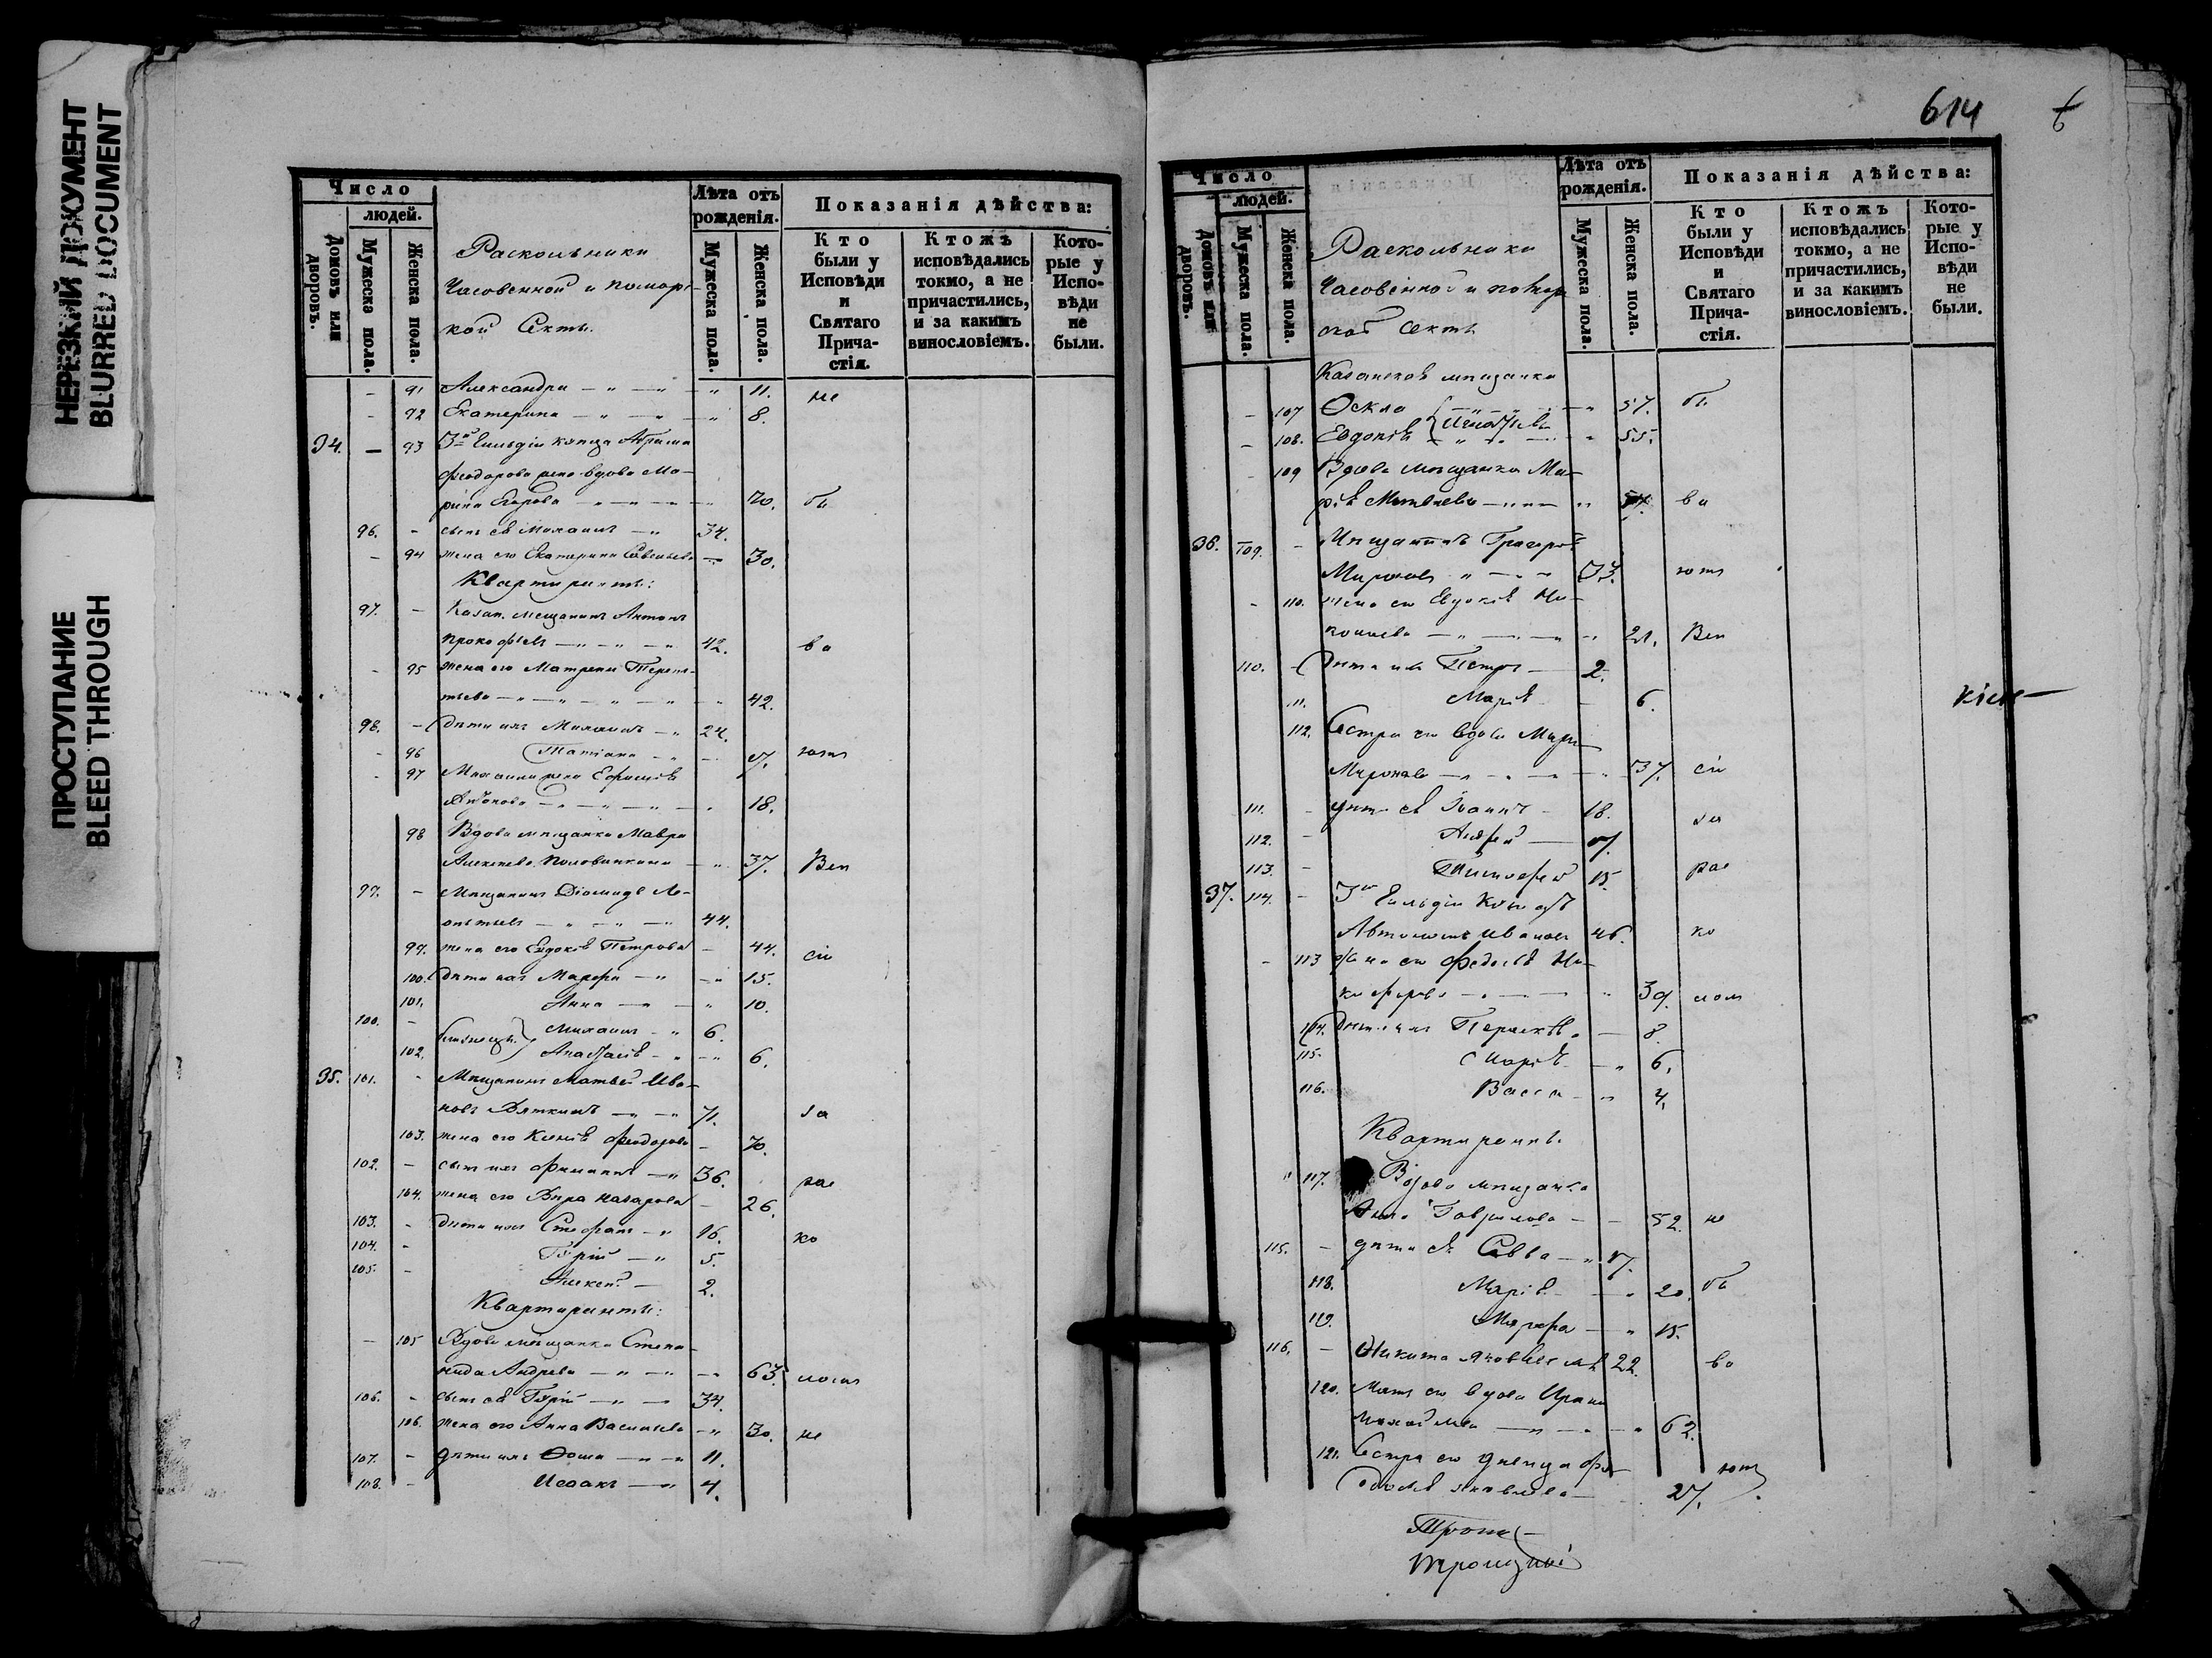 НЕРЕЗКИЙ ДОКУМЕНТ
BLURRED DOCUMENT
ПРОСТУПАНИЕ
BLEED THROUGH
Число
людей.
Домовъ или дворовъ.
Мужеска пола.
Женска пола.
Раскольники
Часовенной и помор-
кой Секты.
Лѣта отъ рожденія.
Мужеска пола.
Женска пола.
Показанія дѣйства:
Кто были у Исповѣди и Святаго Прича-стія.
Ктожъ исповѣдались токмо, а не причастились, и за какимъ винословіемъ.
Кото-рые у Испо-вѣди не были.
- 91 Александра 11. не
- 92 Екатерина 8.
34. - 93 3й Гильдіи купца Абрама
Феодорова жена вдова Ма-
рина Егорова 70. бы
96. - сынъ ея Михаилъ 34.
- 94 жена его Екатерина Савельева 30.
Квартиранты:
97. - Казан. мещанинъ Антонъ
Прокофьевъ 42. ва
- 95 жена его Матрена Терен-
тьева 42.
98. - дѣти ихъ Михаилъ 24.
- 96 Татіана 7. ютъ
- 97 Михаила жена
Антонова 18.
98 Вдова мѣщанка Мавра
Алексѣева Половинкина 37. Вси
99. - Мѣщанинъ Діомидъ Ле-
онтьевъ 44.
99. жена его Евдокія Петрова - 44. сіи
100. дѣти ихъ Марфа 15.
101. Анна 10.
100. - близнецы Михаилъ 6.
102. Анастасія 6.
35. 101. - Мѣщанинъ Матвей Ива-
новъ Вяткинъ 71. за
103. жена его Ксенія Феодорова - 70.
102. - сынъ ихъ Филиппъ 36. рас
104. жена его Вѣра Назарова - 26.
103. - дѣти ихъ Стефанъ 16. ко
104. - Гурій 5.
105. - Алексѣй 2.
Квартиранты:
- 105 Вдова мѣщанка Степа-
нида Андреева 63. ломъ
106. - сынъ ея Гурій 34.
106. жена его Анна Васильева 30. не
107. - дѣти ихъ Ѳома 11.
108. - Исаакъ 4.
614
Число
людей.
Домовъ или дворовъ.
Мужеска пола.
Женска пола.
Раскольники
Часовенной и помор
ской секты
Лѣта отъ рожденія.
Мужеска пола.
Женска пола.
Показанія дѣйства:
Кто были у Исповѣди и Святаго Прича-стія.
Ктожъ исповѣдались токмо, а не причастились, и за какимъ винословіемъ.
Кото-рые у Испо-вѣди не были.
Казанскія мѣщанки
- 107 Ѳекла 57. бы
- 108. Евдокія 55.
- 109 Вдова мѣщанка Ма-
рія Матвѣева ва
36. 109. - Мѣщанинъ Григорій
Мироновъ 33. ютъ
- 110. жена его Евдокія Ни-
колаева 21. Вси
110. - дѣти ихъ Петръ 2.
111. Марія 6.
112. Сестра его вдова Марья
Миронова 37. сіи
111. - дѣти ея Іоаннъ 18. за
112. - Андрей 17.
113. - Тимофей 15. рас
37. 114. - 3й Гильдіи Купецъ
Автономъ Ивановъ 46. ко
- 113 жена его Федосія Ни-
кифорова 39. ломъ
114. дѣти ихъ Параскева 8.
115. Марія 6.
116. Васса 4.
Квартиранты.
117. Вдова мѣщанка
Анна Гаврилова 52. не
115. - дѣти ея Савва 17.
118. Марія 20. бы
119. Марфа 15.
116. - Никита Яковлевъ 22. ва
120. Мать его вдова Ирина
62.
121. Сестра его дѣвица Фе-
досія Яковлева 27. ютъ
Троицкій